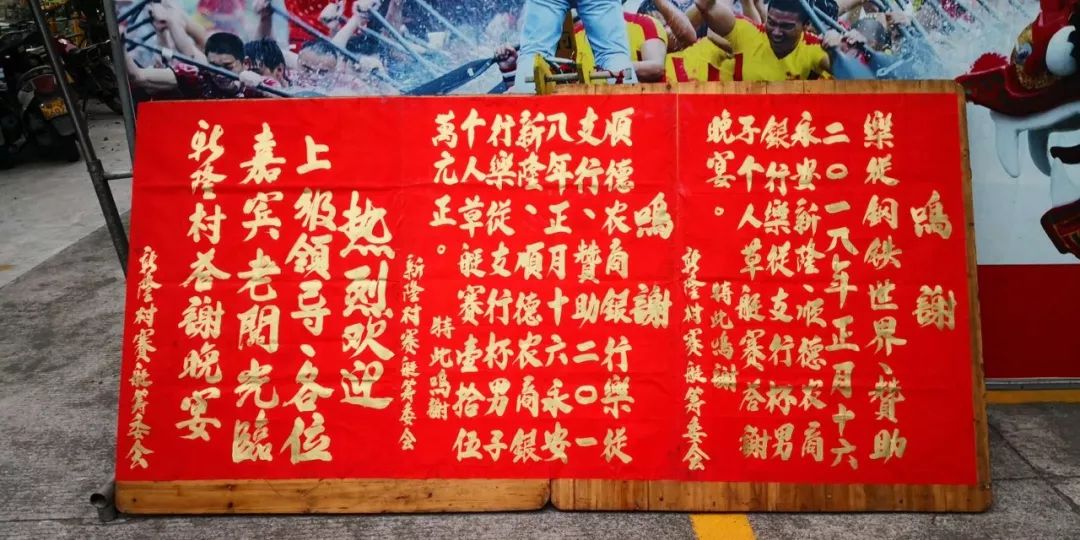 嗚謝
樂從鋼鉄世界、贊助
二〇一八年正月十六
永安、新隆、順德农商
銀行樂從支行杯男
子个人草艇赛答謝
晚宴。
特此鳴謝
新隆村賽艇筹委會
嗚謝
順德农商银行樂從
支行、贊助二〇一
八年正月十六永安
新隆、順德农商銀
行樂從支行杯男子
个人草艇赛壹拾伍
萬元正。
特此鳴謝
新隆村賽艇筹委會
热烈欢迎
上级领导、各位
嘉宾老闆光臨
新隆村答謝晚宴
新隆村賽艇筹委会